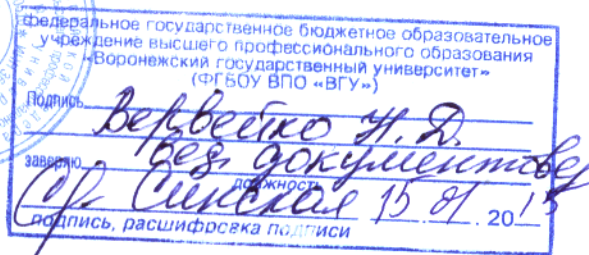 федеральное государственное бюджетное образовательное
учреждение высшего профессионального образования
«Воронежский государственный университет»
(ФГБОУ ВПО «ВГУ»)
Подпись Вервейко Н.Д.
заверяю вед. документовед
должность
Синская 15 01 2015
подпись, расшифровка подписи